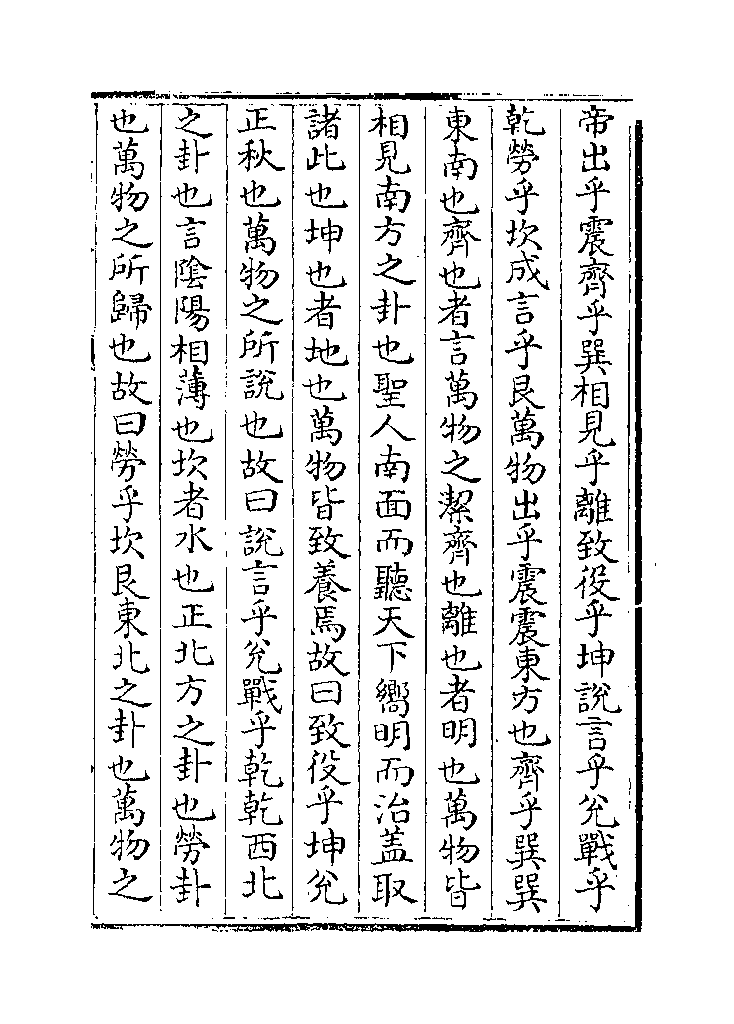 帝出乎震齊乎巽相見乎離致役乎坤說言乎兊戰乎
乾勞乎坎成言乎艮萬物出乎震震東方也齊乎巽巽
東南也齊也者言萬物之潔齊也離也者明也萬物皆
相見南方之卦也聖人南面而聽天下嚮明而治盖取
諸此也坤也者地也萬物皆致養焉故曰致役乎坤兊
正秋也萬物之所說也故曰說言乎兊戰乎乾乾西北
之卦也言陰陽相薄也坎者水也正北方之卦也勞卦
也萬物之所歸也故曰勞乎坎艮東北之卦也萬物之